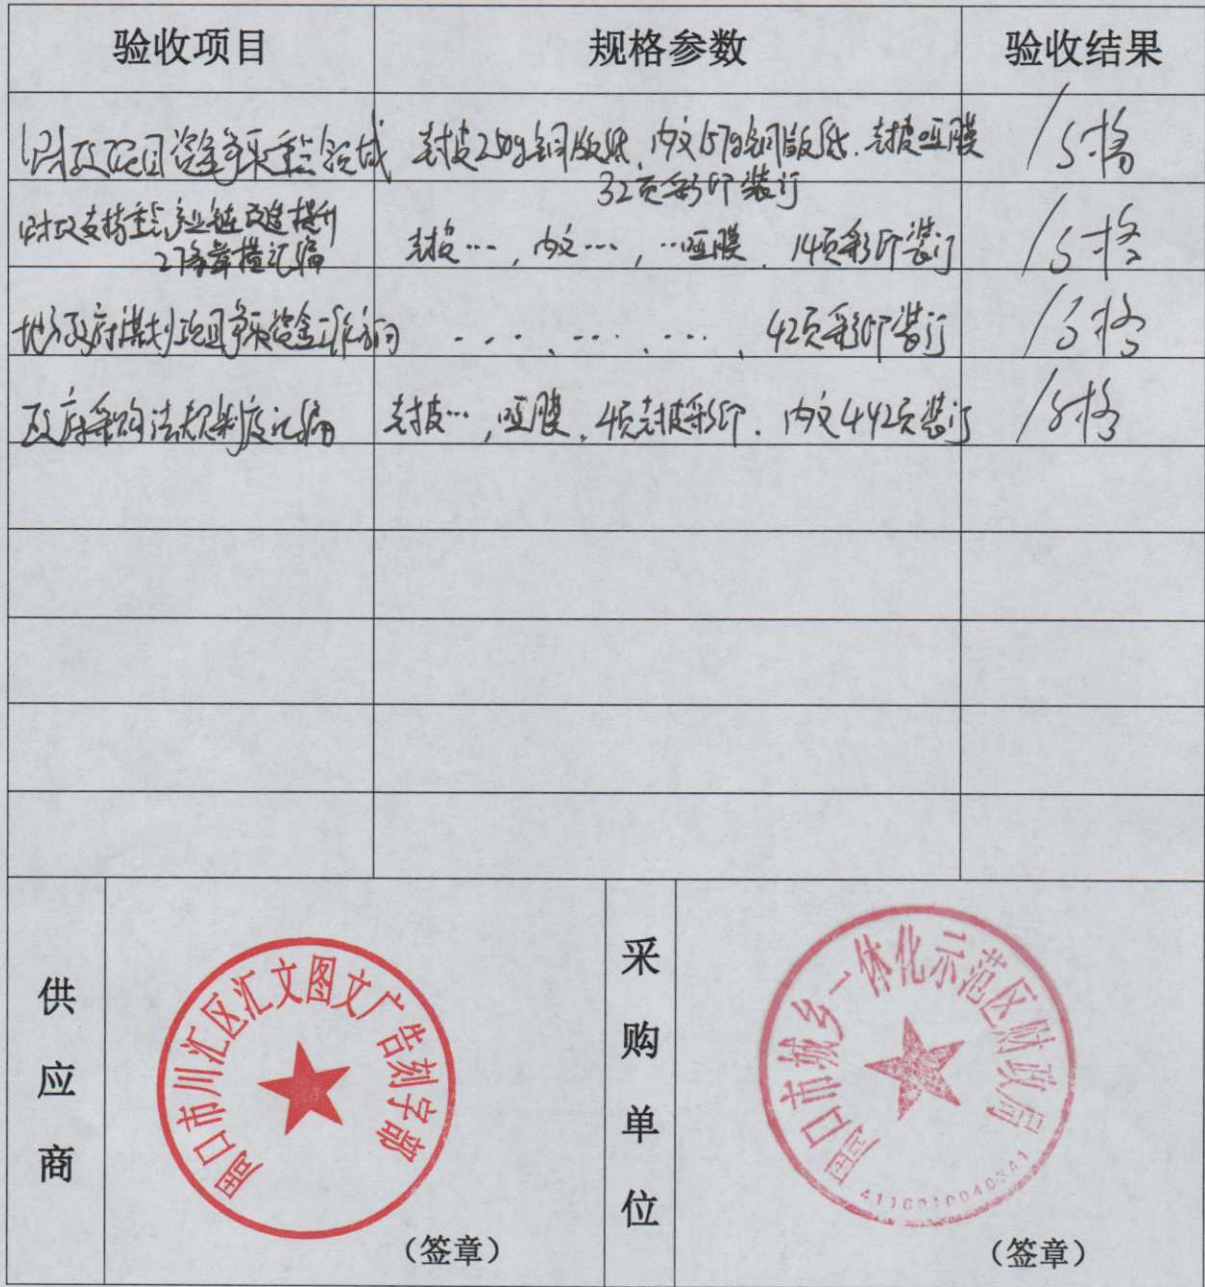 验收项目 规格参数 验收结果
财政项目资金争取重点领域 封皮250g铜版纸,内文157g铜版纸.封皮哑膜 合格
32页彩印装订
财政支持重点产业链改造提升 封皮…,内文…,…哑膜.14页彩印装订 合格
27条举措汇编
地方政府谋划项目争取资金工作方向 ...,...,...,42页彩印装订 合格
政府采购法规制度汇编 封皮…,哑膜.4页封皮彩印.内文442页装订 合格
供应商
周口市川汇区汇文图文广告刻字部
(签章)
采购单位
周口市城乡一体化示范区财政局
4110010040341
(签章)